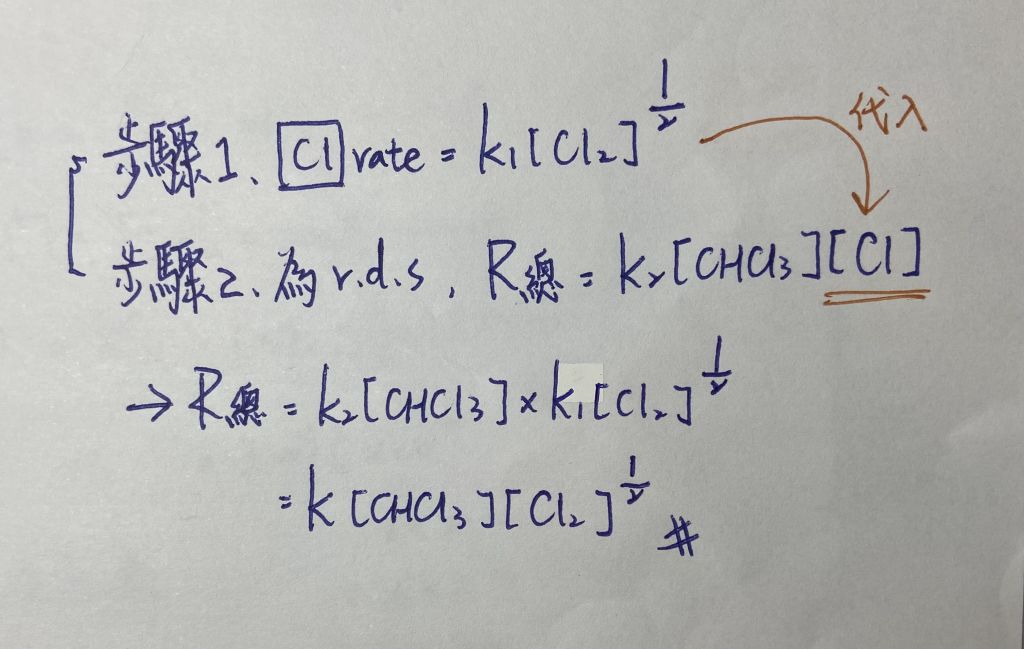 步驟1、Cl rate = k₁[Cl₂]^½
代入
步驟2、為 r.d.s, R總 = k₂[CHCl₃][Cl]
→ R總 = k₂[CHCl₃] × k₁[Cl₂]^½
= k[CHCl₃][Cl₂]^½ #